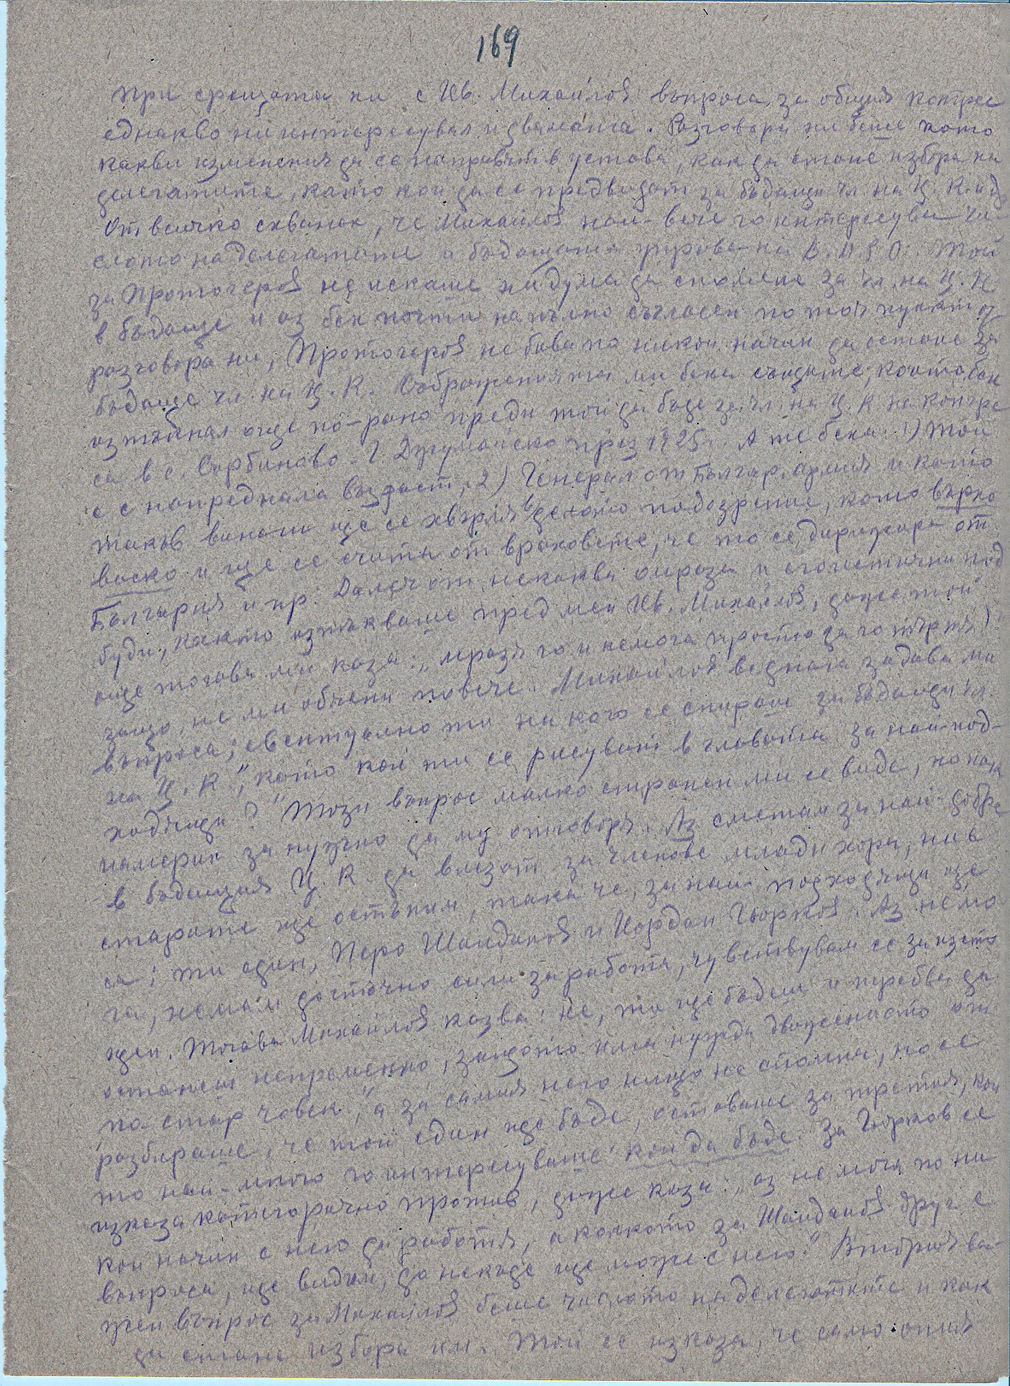 169
при срещата ни с Ив. Михайлов въпроса за общия конгрес
еднакво ни интересувал и двамата. Разговора ни беше като
какви изменения да се направят в устава, как да стане избора на
делегатите, като кои да се предвидят за бъдащи чл. на Ц. К. и др.
От всичко схванах, че Михайлов най-вече го интересува чи-
слото на делегатите и бъдащата управа на В.М.Р.О. Той
за Протогеров не искаше и дума да спомене за чл. на Ц. К.
в бъдаще и аз бех почти напълно съгласен по тоя пункт от
разговора ни, Протогеров не бива по никой начин да остане за
бъдаще чл. на Ц. К. Съображенията ми беха същите, които бех
изтъкнал още по-рано преди той да бъде за чл. на Ц. К. на конгре
са в с. Сърбиново - Г. Джумайско през 1925 г. А те беха: 1) Той
е с напреднала възраст, 2) Генерал от Българ. армия и като
такъв винаги ще се хвърля некакво подозрение, като върхо
виско и ще се счита от враговете, че то се дирижира от
България и пр. Далеч от некаква омраза и егоистични под
буди, както изтъкваше пред мен Ив. Михайлов, даже той
още тогава ми каза: „мразя го и немога просто да го търпя“!
защо, не ми обясни повече. Михайлов веднага задава ми
въпроса; „евентуално ти на кого се спираш за бъдащи чл.
на Ц. К.“, като кои ти се рисуват в главата за най-под-
ходящи?“ Този въпрос малко странен ми се виде, но пак
намерих за нужно да му отговоря. Аз сметам за най-добре
в бъдащия Ц. К. да влезат за членове млади хора, ние
старите ще отстъпим, така че, за най-подходящи ще
са: ти един, Перо Шанданов и Йордан Гюрков. Аз немо
га, немам досточно сили за работа, чувствувам се за изто
щен. Тогава Михайлов казва: не, ти ще бъдеш и требва да
останеш непременно, защото има нужда движението от
по-стар човек“, а за самия него нищо не спомена, но се
разбираше, че той един ще бъде, оставаше за третия, кой
то най-много го интересуваше кой да бъде. За Гюрков се
изказа категорично против, даже каза: „аз не мога по ни
кой начин с него да работя, а колкото за Шанданов друг е
въпроса, ще видим, до некъде ще може с него.“ Втория ва-
жен въпрос за Михайлов беше числото на делегатите и как
да стане избора им. Той се изказа, че само ония